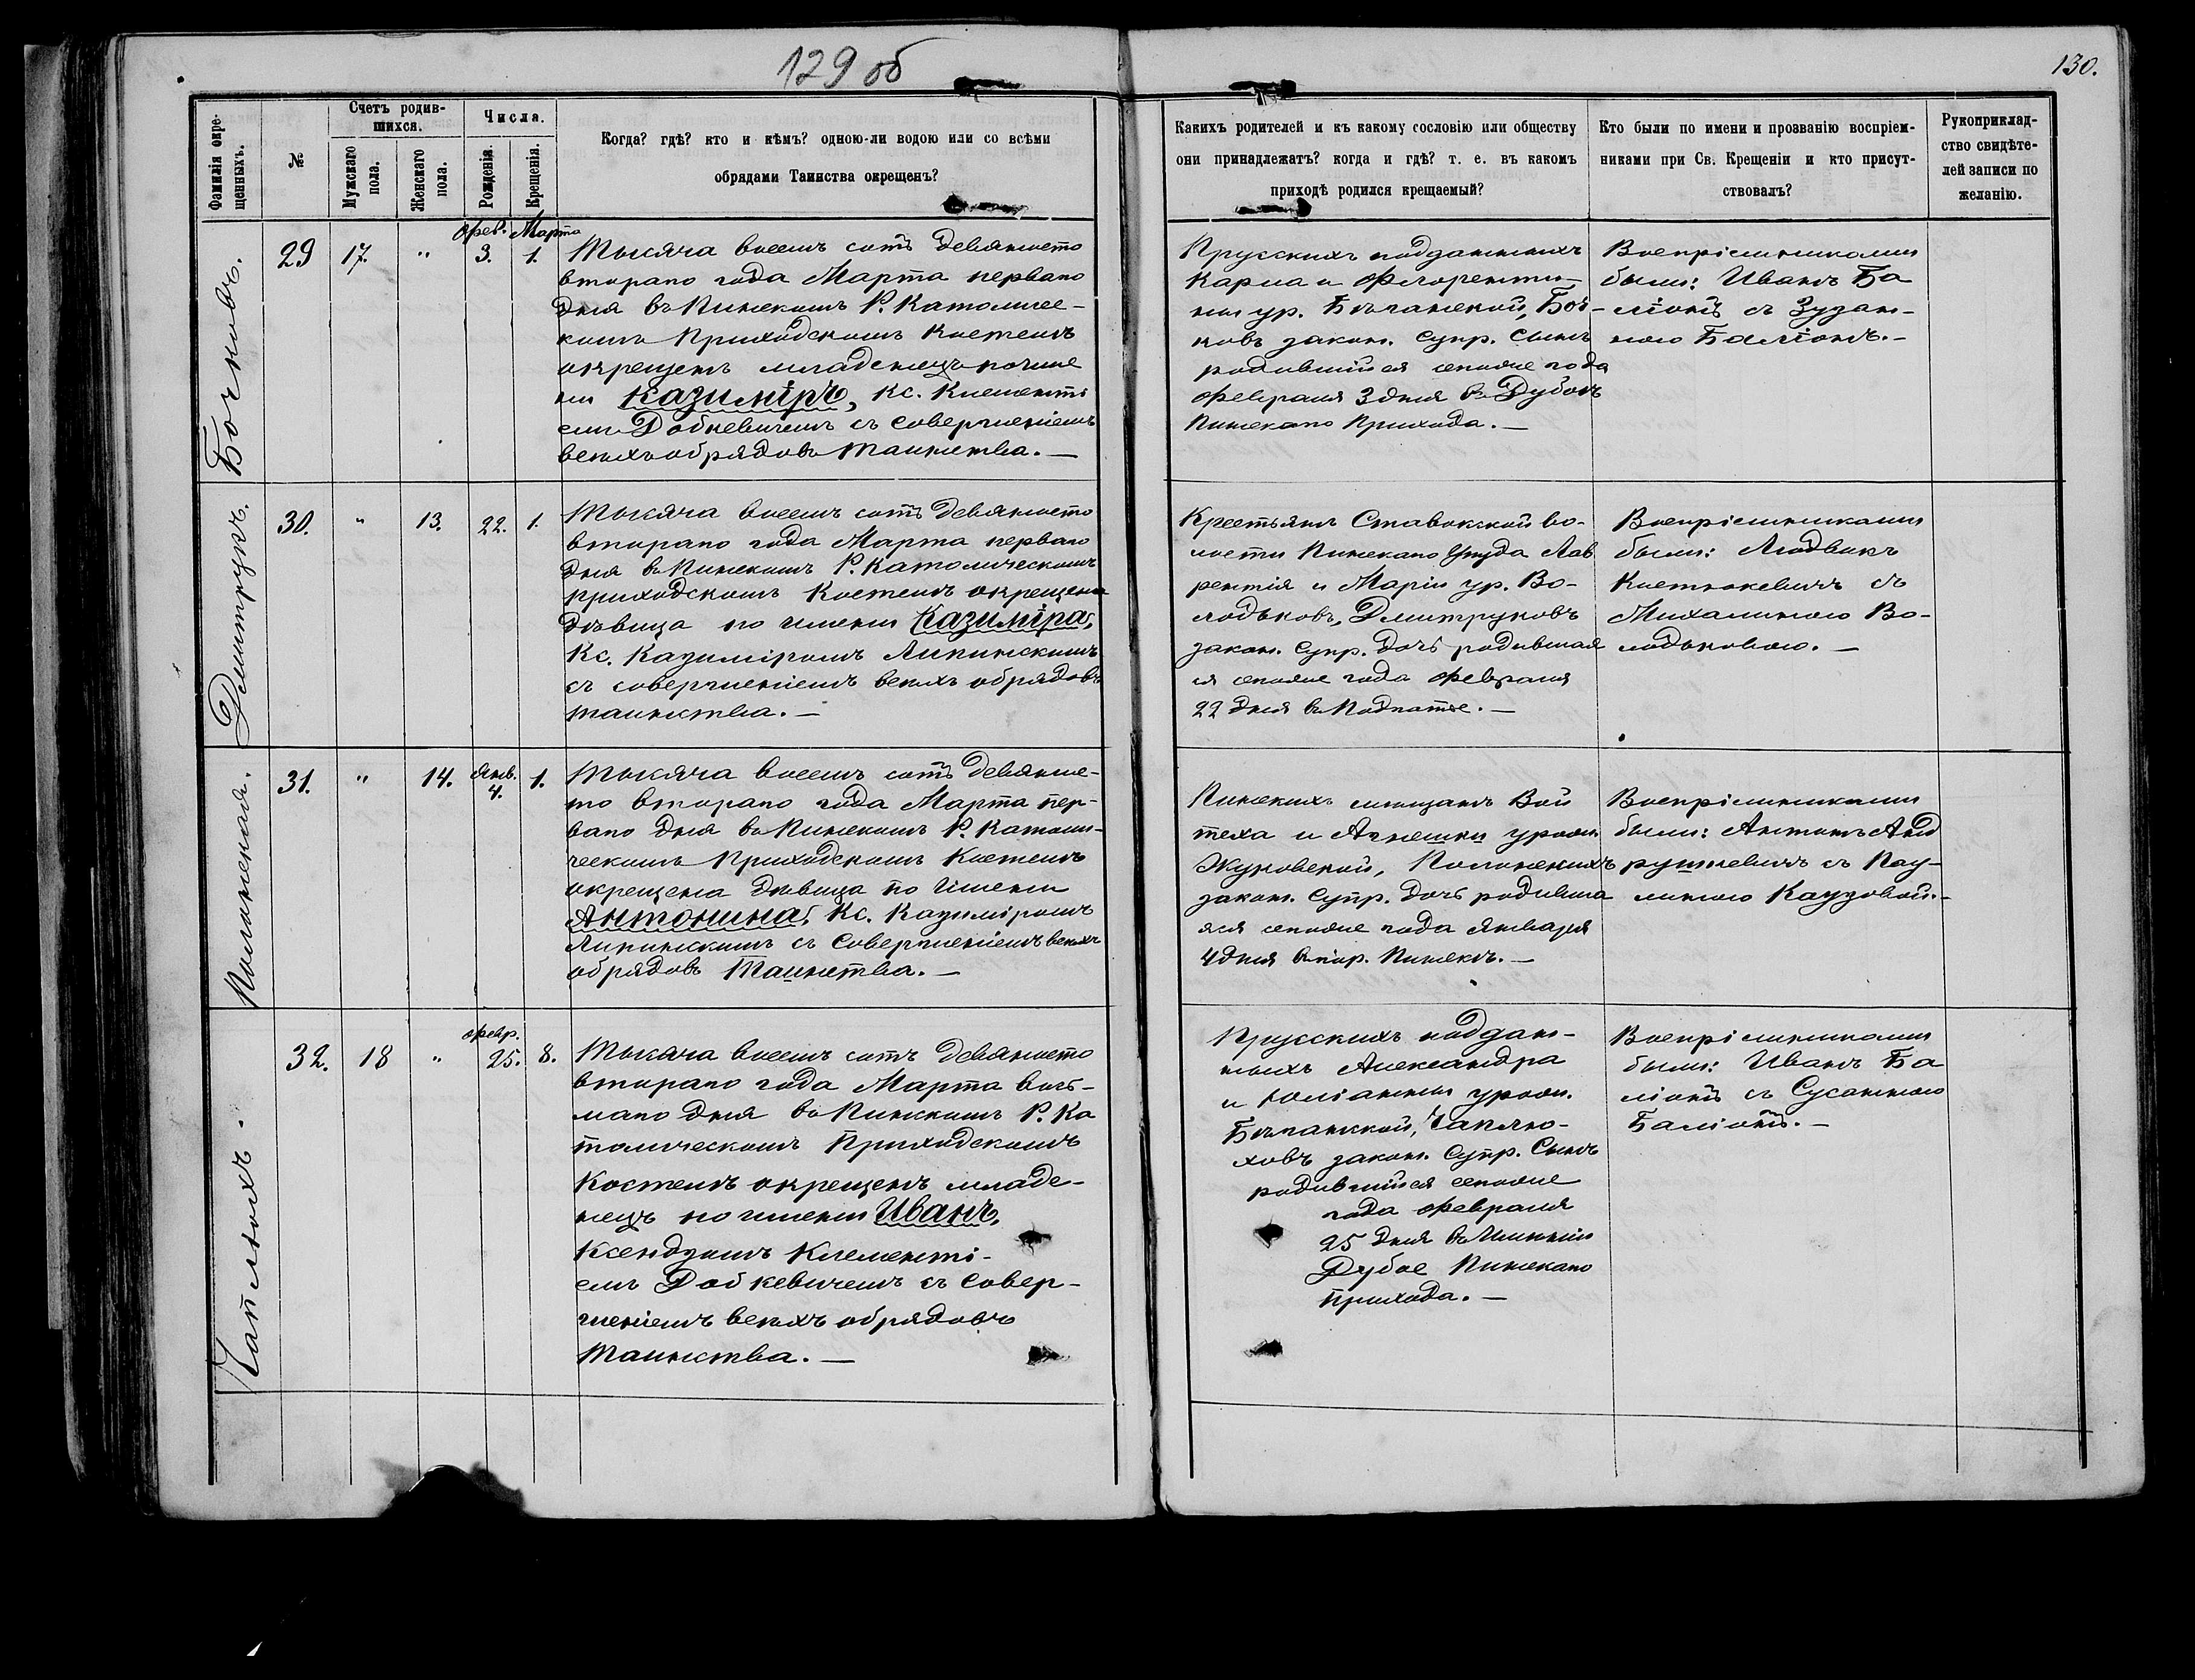 129 об
130.
Фамилія окре-
щенныхъ.
№
Счетъ родив-
шихся.
Мужскаго
пола.
Женскаго
пола.
Числа.
Рожденія.
Крещенія.
Когда? гдѣ? кто и кѣмъ? одною-ли водою или со всѣми
обрядами Таинства окрещенъ?
Какихъ родителей и къ какому сословію или обществу
они принадлежатъ? когда и гдѣ? т. е. въ какомъ
приходѣ родился крещаемый?
Кто были по имени и прозванію воспріем-
никами при Св. Крещеніи и кто присут-
ствовалъ?
Рукоприклад-
ство свидѣте-
лей записи по
желанію.
Бочковъ.
29
17.
"
Фев.
3.
Марта
1.
Тысяча восемь сотъ девяносто
втораго года Марта перваго
дня въ Пинскомъ Р. Католичес-
комъ Приходскомъ Костелѣ
окрещенъ младенецъ по име
ни Казиміръ, Кс. Клементі
емъ Добкевичемъ съ совершеніемъ
всѣхъ обрядовъ Таинства. —
Прусскихъ подданныхъ
Карла и Флоренти-
ны ур. Бѣганской, Боч-
ковъ закон. Супр. Сынъ
родившійся сегоже года
Февраля 3 дня въ Дубоѣ
Пинскаго Прихода. —
Воспріемниками
были: Иванъ Ба
ліонъ съ Зузан-
ною Баліонъ. —
Дмитрукъ.
30.
"
13.
22.
1.
Тысяча восемь сотъ девяносто
втораго года Марта перваго
дня въ Пинскомъ Р. Католическомъ
приходскомъ Костелѣ окрещена
дѣвица по имени Казиміра,
Кс. Казиміромъ Липинскимъ
съ совершеніемъ всѣхъ обрядовъ
таинства. —
Крестьянъ Ставокской во-
лости Пинскаго Уѣзда Лав
рентія и Маріи ур. Во-
лодьковъ, Дмитруковъ
закон. Супр. дочь родившая
ся сегоже года Февраля
22 дня въ Подгатье. —
Воспріемниками
были: Людвикъ
Костюкевичъ съ
Михалиною Во-
лодьковою. —
Полонская.
31.
"
14.
Янв.
4.
1.
Тысяча восемь сотъ девянос-
то втораго года Марта пер-
ваго дня въ Пинскомъ Р. Католи-
ческомъ Приходскомъ Костелѣ
окрещена дѣвица по Имени
Антонина, Кс. Казиміромъ
Липинскимъ съ Совершеніемъ всѣхъ
обрядовъ Таинства. —
Пинскихъ мѣщанъ Вой
теха и Агнешки урожд.
Жуковской, Полонскихъ
закон. Супр. дочь родивша
яся сегоже года Января
4 дня въ гор. Пинскѣ. —
Воспріемниками
были: Антонъ Анд
рушкевичъ съ Пау-
линою Каузовой. —
Чаплюхъ.
32.
18
"
Февр.
25.
8.
Тысяча восемь сотъ девяносто
втораго года Марта вось-
маго дня въ Пинскомъ Р. Ка
толическомъ Приходскомъ
Костелѣ окрещенъ младе-
нецъ по имени Иванъ,
Ксендзомъ Клементі-
емъ Добкевичемъ съ совер-
шеніемъ всѣхъ обрядовъ
Таинства. —
Прусскихъ поддан-
ныхъ Александра
и Юліанны урожд.
Бѣганской, Чаплю-
ховъ закон. Супр. Сынъ
родившійся сегоже
года Февраля
25 дня въ Имѣніи
Дубое Пинскаго
прихода. —
Воспріемниками
были: Иванъ Ба
ліонъ съ Сусанною
Баліонъ. —